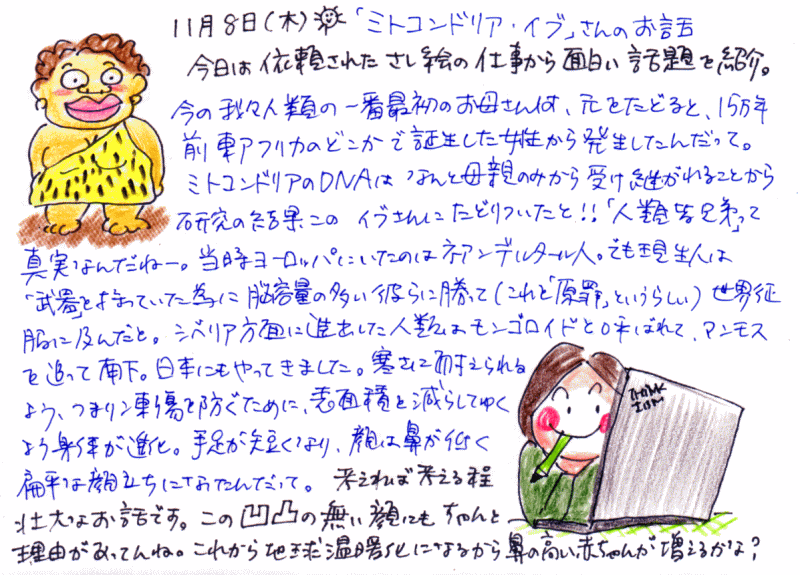 11月8日(木) 「ミトコンドリア・イブ」さんのお話
今日は依頼されたさし絵の仕事から面白い話題を紹介。
今の我々人類の一番最初のお母さんは、元をたどると、15万年
前東アフリカのどこかで誕生した女性から発生したんだって。
ミトコンドリアのDNAはなんと母親のみから受け継がれることから
研究の結果このイヴさんにたどりついたと!!「人類皆兄弟」って
真実なんだねー。当時ヨーロッパにいたのはネアンデルタール人。でも現生人は
「武器」を持っていた為に脳容量の多い彼らに勝って(これを「原罪」というらしい)世界征
服に及んだと。シベリア方面に進出した人類はモンゴロイドと呼ばれて、マンモス
を追って南下。日本にもやってきました。寒さに耐えられる
よう、つまり凍傷を防ぐために、表面積を減らしてゆく
よう身体が進化。手足が短くなり、顔は鼻が低く
扁平な顔立ちになったんだって。考えれば考える程
壮大なお話です。この凹凸の無い顔にもちゃんと
理由があってんね。これから地球温暖化になるから鼻の高い赤ちゃんが増えるかな?
THINK
IBM